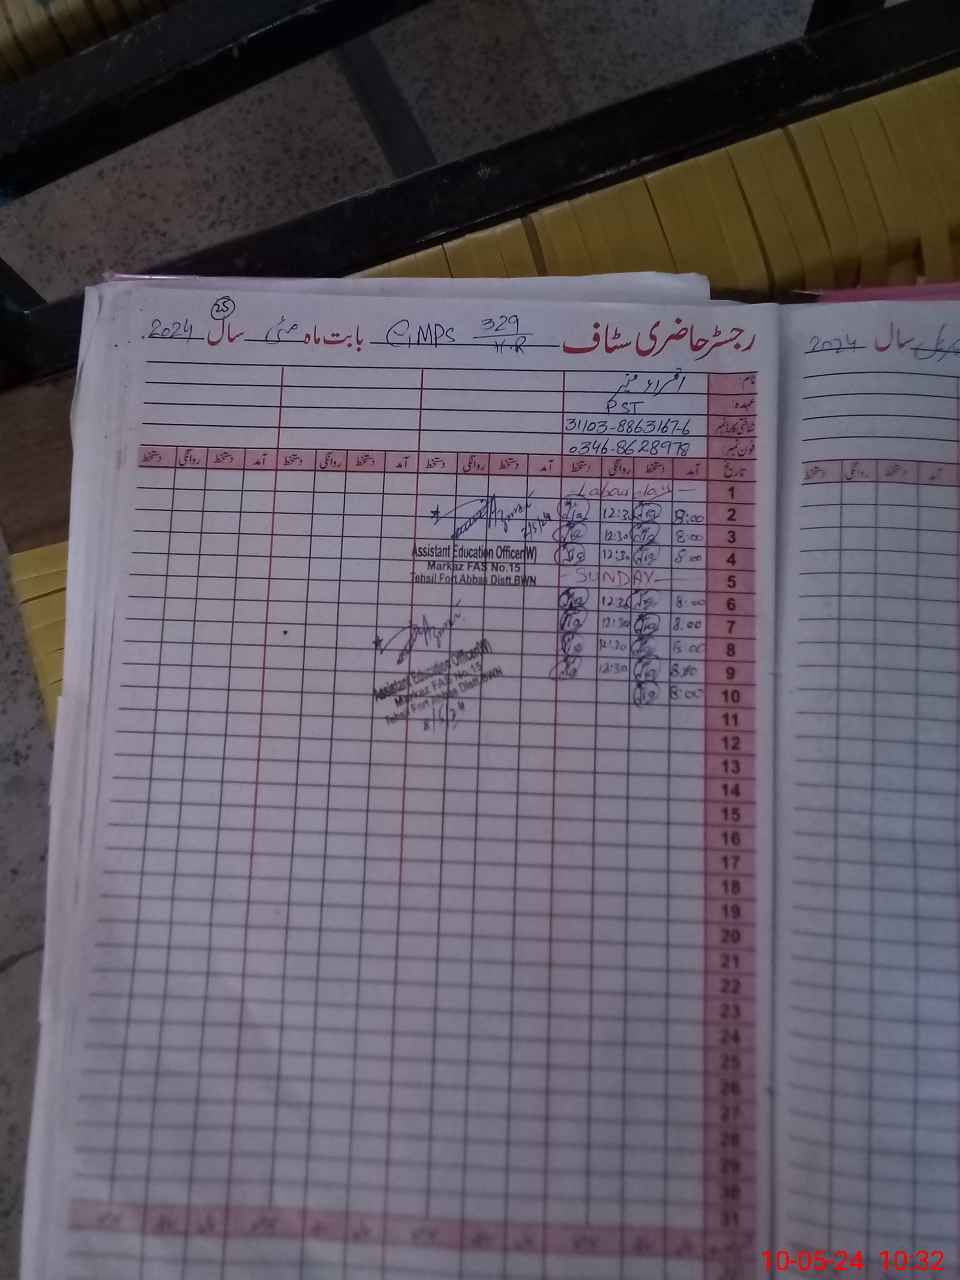 رجسٹر حاضری سٹاف GMPS 329/H.R بابت ماہ مئی سال 2024
25
سال 2024
نام:
عہدہ PST
31103-8863167-6
فون نمبر: 0346-8628978
تاریخ آمد دستخط روانگی دستخط آمد دستخط روانگی دستخط آمد دستخط روانگی دستخط آمد دستخط روانگی دستخط
آمد دستخط روانگی دستخط
1 Labour day
2 8:00 12:30
3 8:00 12:30
4 8:00 12:30
5 SUNDAY
6 8:00 12:30
7 8:00 12:30
8 8:00 12:30
9 8:00 12:30
10 8:00
11
12
13
14
15
16
17
18
19
20
21
22
23
24
25
26
27
28
29
30
31
Assistant Education Officer(W)
Markaz FAS No.15
Tehsil Fort Abbas Distt.BWN
Assistant Education Officer(W)
Markaz FAS No.15
Tehsil Fort Abbas Distt.BWN
10-05-24 10:32